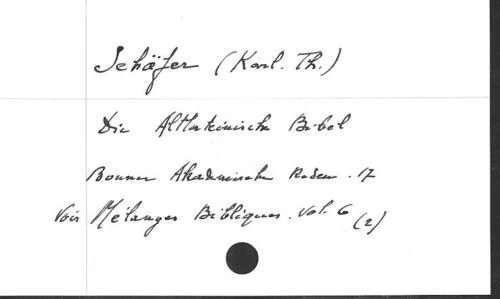 Schäfer (Karl. Th.)
Die Altlateinische Bibel
Bonner Akademische Reden. 17
Voir Mélanges Bibliques. Vol. 6 (2)